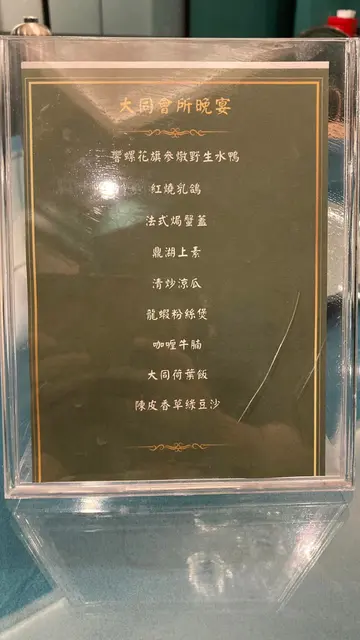 大同會所晚宴
響螺花旗參燉野生水鴨
紅燒乳鴿
法式焗蟹蓋
鼎湖上素
清炒涼瓜
龍蝦粉絲煲
咖喱牛腩
大同荷葉飯
陳皮香草綠豆沙